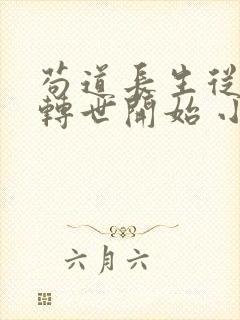 苟道長生從
轉世開始 小
六月六